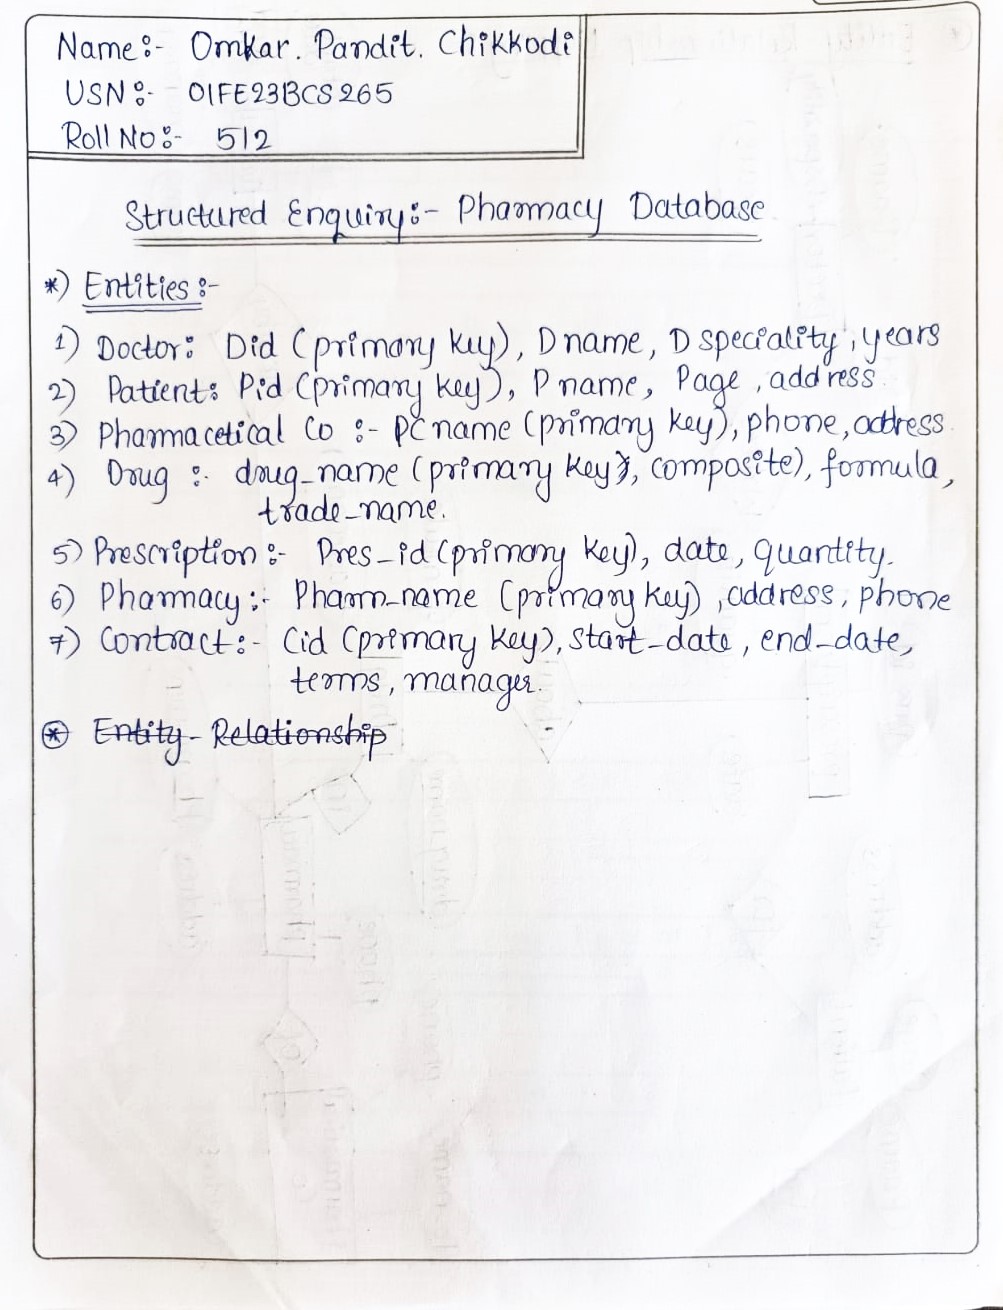 Name:- Omkar. Pandit. Chikkodi
USN:- 01FE23BCS265
Roll No:- 512
Structured Enquiry:- Pharmacy Database
*) Entities :-
1) Doctor: Did (primary key), Dname, D speciality, years
2) Patient: Pid (primary key), P name, Page, address
3) Pharmacetical Co :- PC name (primary key), phone, address.
4) Drug :- drug_name (primary key, composite), formula,
trade_name.
5) Prescription :- Pres_id (primary key), date, quantity.
6) Pharmacy :- Pharm_name (primary key), address, phone
7) Contract :- Cid (primary key), start_date, end_date,
terms, manager.
* Entity-Relationship